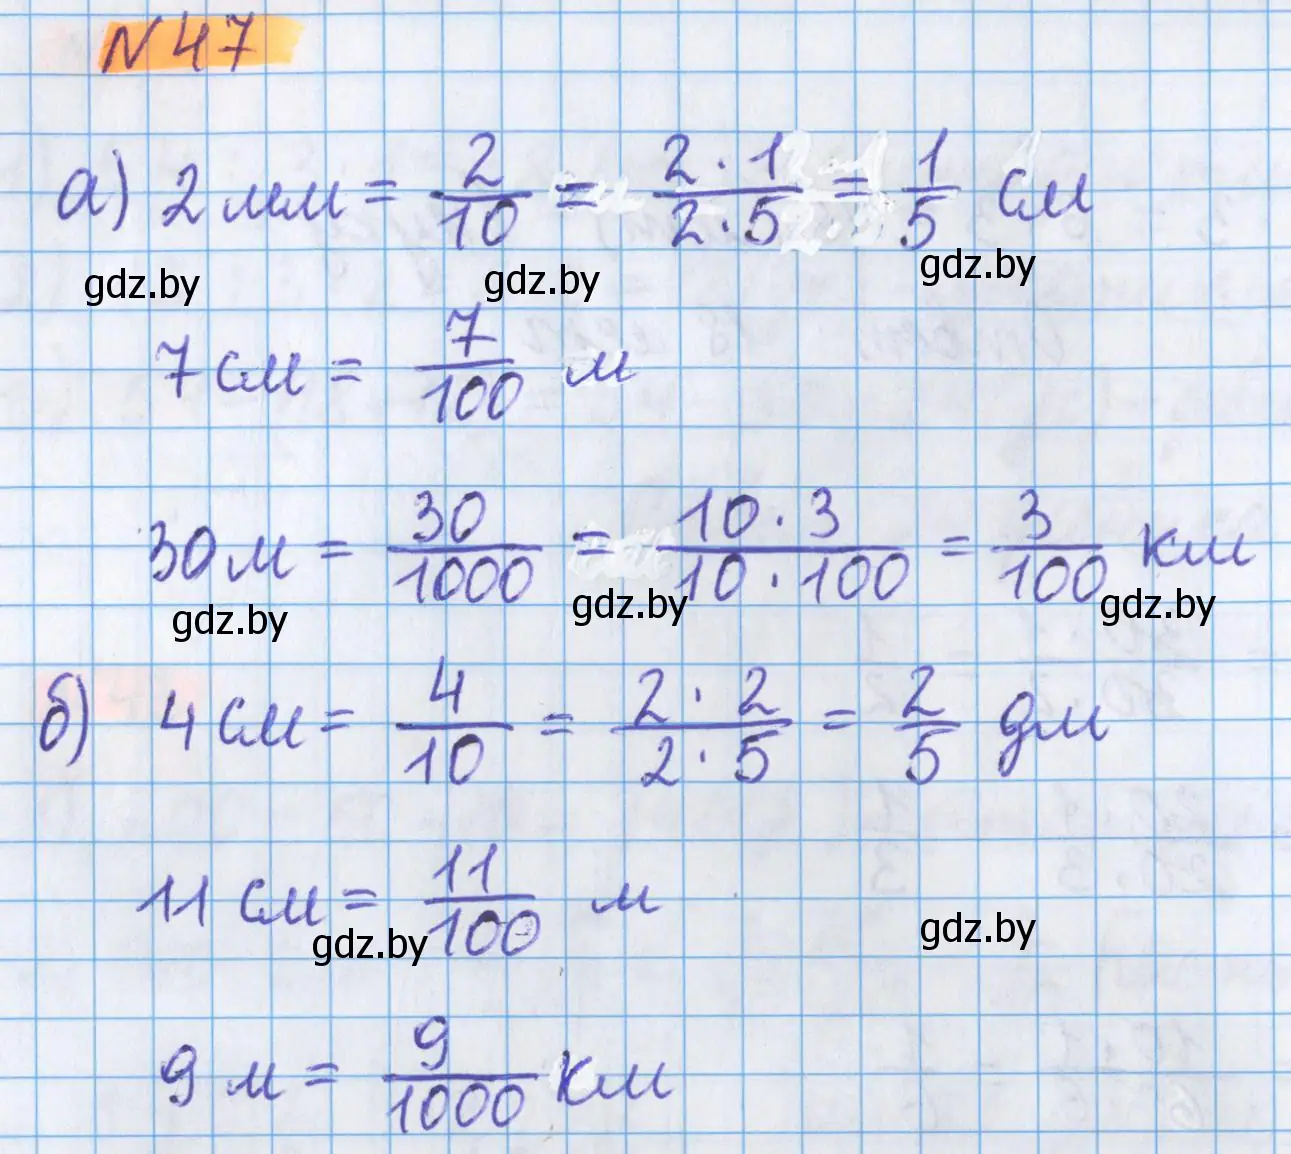 N 47
а) 2 мм = 2/10 = 2·1/2·5 = 1/5 см
gdz.by gdz.by gdz.by
7 см = 7/100 м
30 м = 30/1000 = 10·3/10·100 = 3/100 км
gdz.by gdz.by gdz.by
б) 4 см = 4/10 = 2·2/2·5 = 2/5 дм
11 см = 11/100 м
gdz.by gdz.by
9 м = 9/1000 км